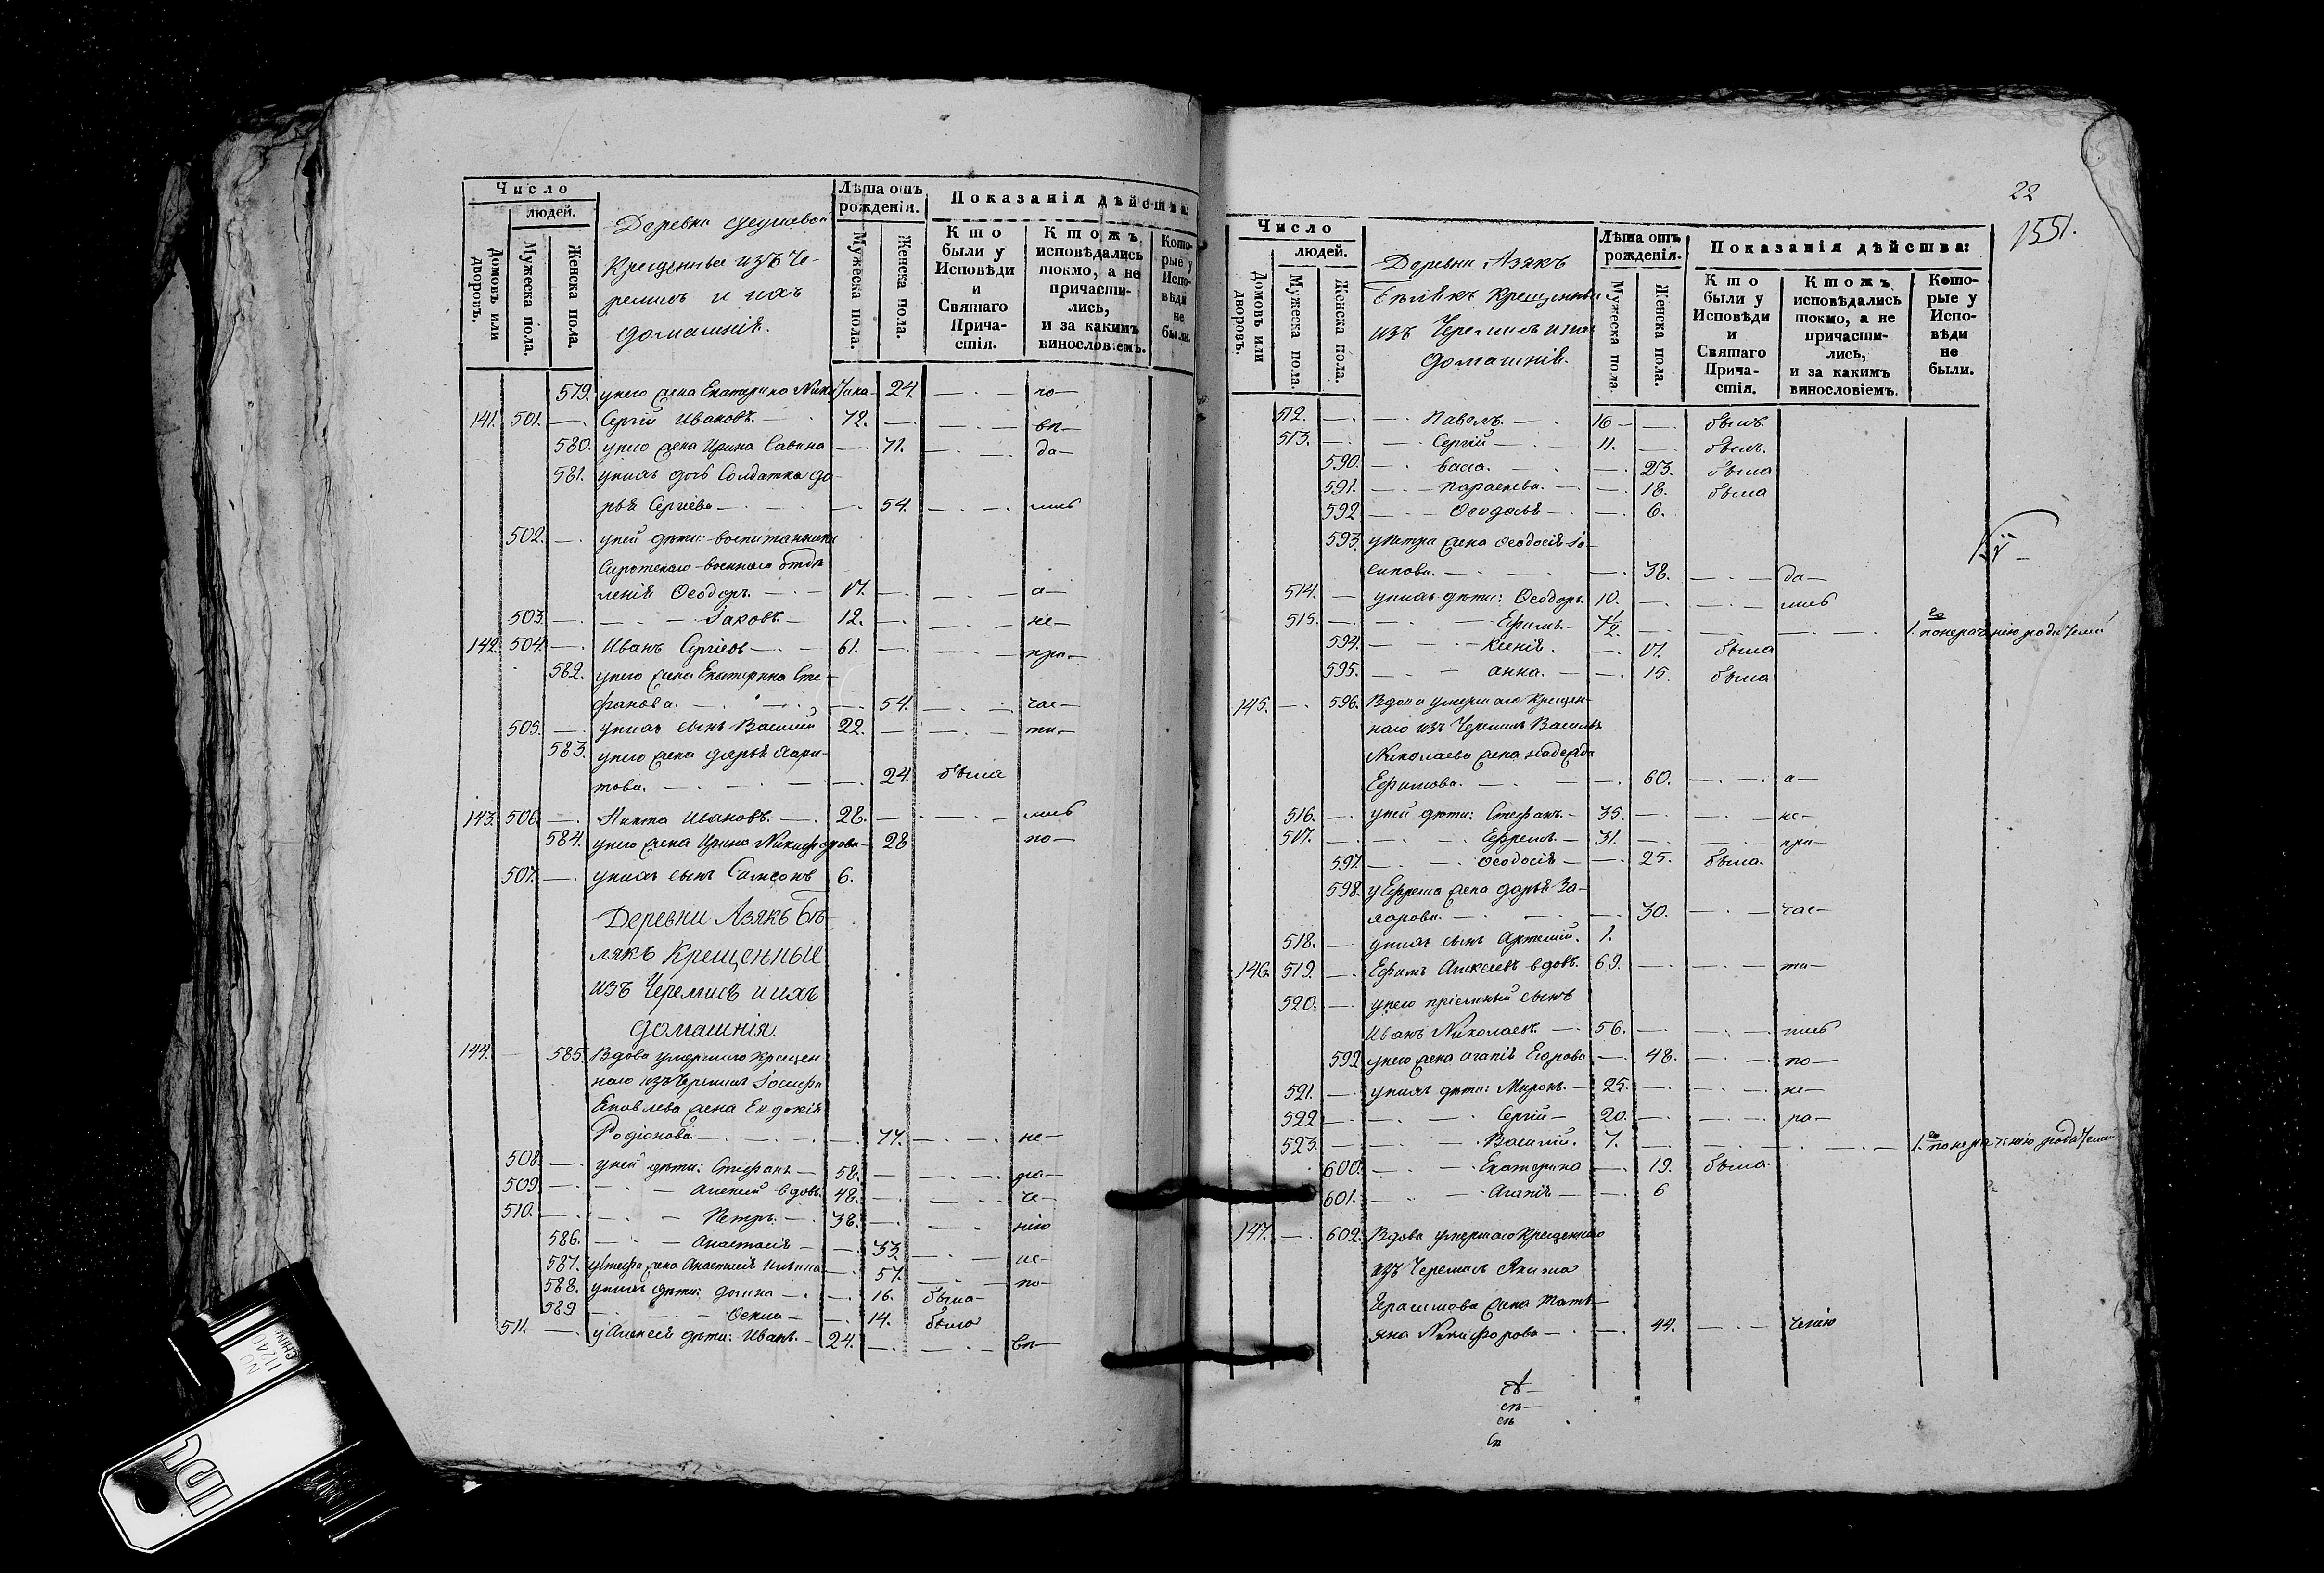 Число
людей.
Домовъ или дворовъ.
Мужеска пола.
Женска пола.
Деревни
Крещеные изъ Че-
ремисъ и ихъ
домашнія.
Лѣта отъ рожденія.
Мужеска пола.
Женска пола.
Показанія дѣйства:
Кто были у Исповѣди и Святаго Прича-стія.
Ктожъ исповѣдались токмо, а не причасти-лись, и за какимъ винословіемъ.
Кото-рые у Испо-вѣди не были.
579. у него жена Екатерина 24. — по—
141. 501. — Сергій Ивановъ. — 72. — вѣ—
580. у него жена Ирина Савина — 71. — да—
581. у нихъ дочь Солдатка Да-
рья Сергіева — 54. — лись
502. — у ней дѣти: воспитанники
Сиротскаго военнаго отдѣ
ленія Ѳеодоръ. — 17. — а—
503. — Іаковъ. — 12. — не—
142. 504. — Иванъ Сергіевъ — 61. — при—
582. у него жена Екатерина Сте-
фанова. — 54. — час—
505. — у нихъ сынъ Василій 22. — ти—
583. у него жена Дарья Хари-
това. — 24. была
143. 506. — Никита Ивановъ. — 28. — лись
584. у него жена Ирина Никифорова — 28 по—
507. — у нихъ сынъ Симеонъ 6.
Деревни Азякъ Бѣ
лякъ Крещенные
изъ Черемисъ и ихъ
домашнія.
144. — 585. Вдова умершаго Крещен
наго изъ Черемисъ Іосифа
Яковлева жена Евдокія
Родіонова — 77. — не—
508. — у ней дѣти: Стефанъ — 58. — ра—
509 — Алексій вдовъ. 48. — че—
510. — Петръ. — 38. — нію
586. — Анастасія — 33. — не—
587. у Стефа жена Анастасія Ильина — 57. — по—
588. у нихъ дѣти: Домна — 16. была—
589 — Ѳекла — 14. была
511. — у Алексія дѣти: Иванъ — 24. — вѣ—
22
1551.
Число
людей.
Домовъ или дворовъ.
Мужеска пола.
Женска пола.
Деревни Азякъ
Бѣлякъ Крещенныя
изъ Черемисъ и ихъ
домашнія.
Лѣта отъ рожденія.
Мужеска пола.
Женска пола.
Показанія дѣйства:
Кто были у Исповѣди и Святаго Прича-стія.
Ктожъ исповѣдались токмо, а не причасти-лись, и за какимъ винословіемъ.
Кото-рые у Испо-вѣди не были.
512. — Павелъ. — 16 — былъ.
513. — Сергій — 11. — былъ.
590. — Васса. — 23. была
591. — Параскева. — 18. была
592 — Ѳеодосья — 6.
593. у Петра жена Ѳеодосія Іо-
сипова. — 38. — да—
514. — у нихъ дѣти: Ѳеодоръ. 10. — лись
515. — Ефимъ. — 7½. — 1. по нераченію родителей
594. — Ксенія. — 17. была
595. — Анна. — 15. была
145. — 596. Вдова умершаго Крещен-
наго изъ Черемисъ Василья
Николаева жена Надежда
Ефимова. — 60. — а—
516. — у ней дѣти: Стефанъ. — 35. — не—
517. — Ефремъ. — 31. — при—
597. — Ѳеодосія — 25. была.
598. у Ефрема жена Дарья За-
харова. — 30. — час—
518. — у нихъ сынъ Артемій. 1.
146. 519. — Ефимъ Алексѣевъ вдовъ. 69. — ти—
520. — у него пріемный сынъ
Иванъ Николаевъ. — 56. — лись
592 у него жена Агапія Егорова — 48. — по—
521. — у нихъ дѣти: Миронъ. — 25. — не—
522 — Сергій — 20. — ра—
523. — Василій. 7. — 1. по нераченію родителей
600. — Екатерина — 19. была.
601. — Агапія — 6
147. — 602. Вдова умершаго Крещеннаго
изъ Черемисъ Якима
Герасимова жена Тать—
яна Никифорова — 44. — ченію